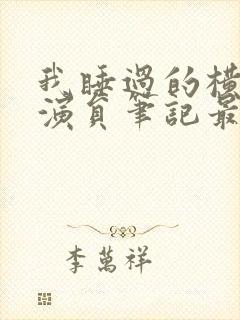 我睡過的橫
演員筆記最
李萬祥